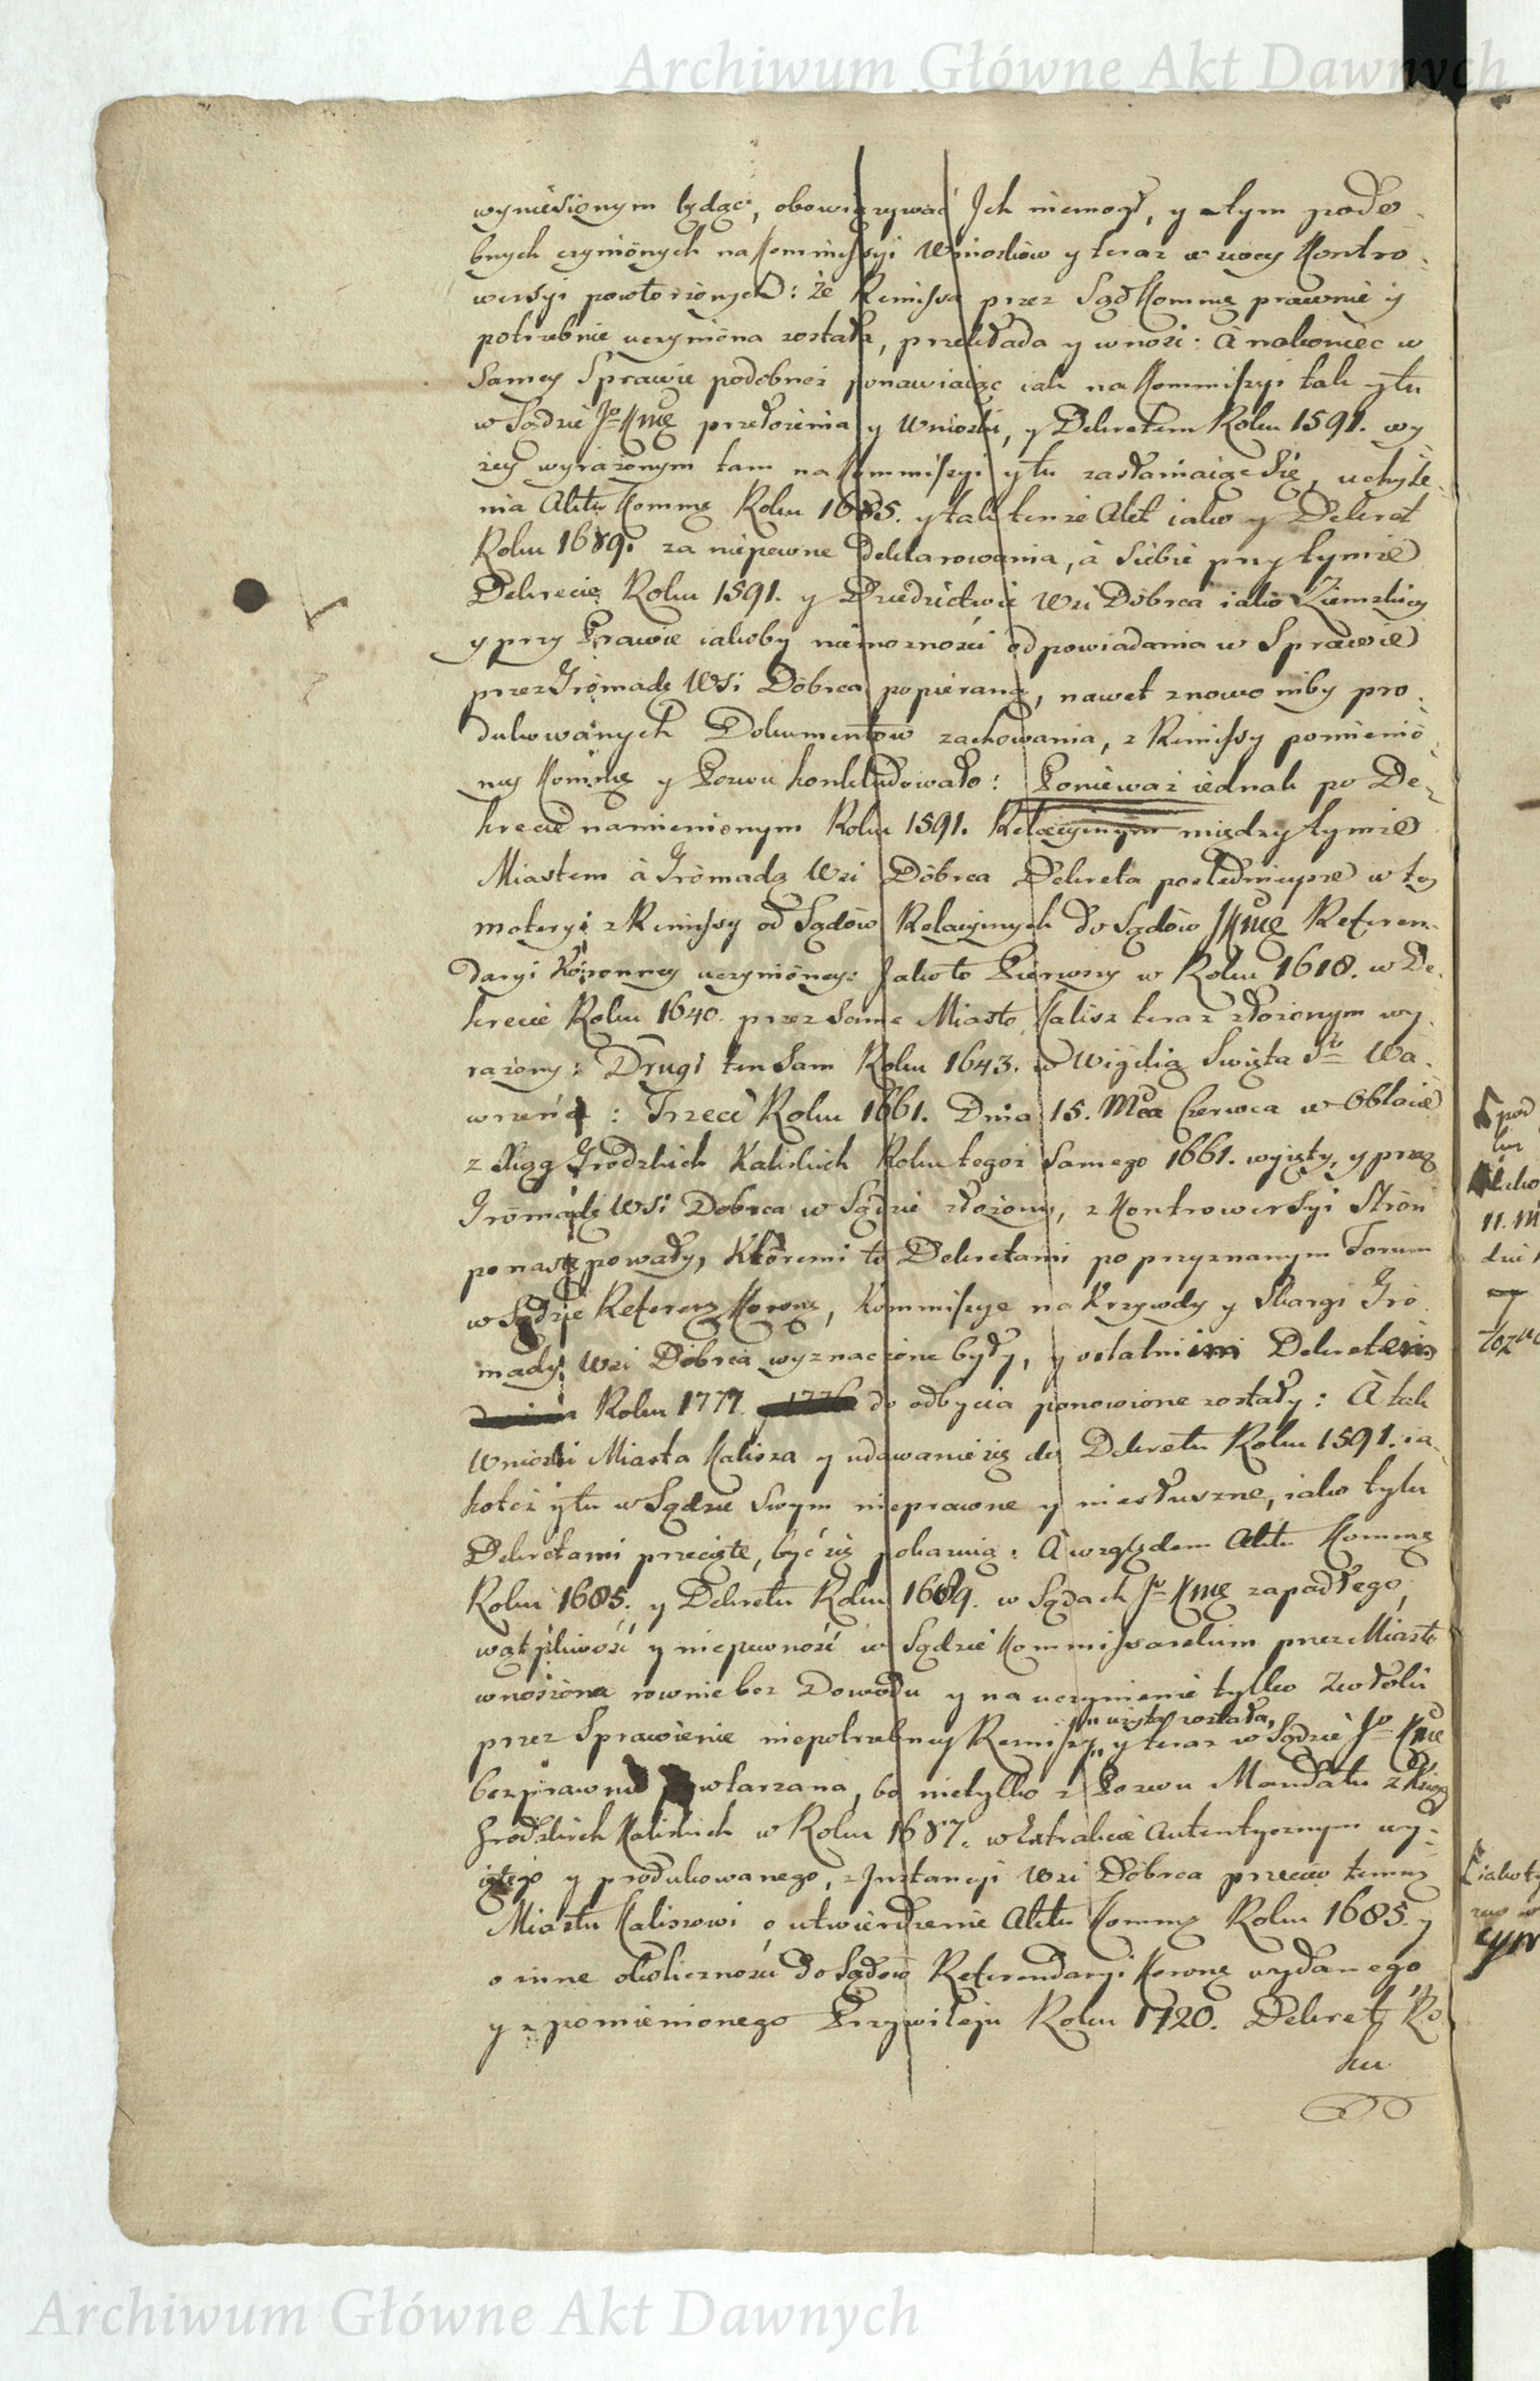 Archiwum Główne Akt Dawnych
wyniesionym będąc, obowiązywać Jch niemogł, y o tym podo-
bnych czynionych na Kommissyi Wniosków y teraz w rzeczy Kontro-
wersyi powtorzonych: że Remissa przez Sąd Kommę prawnie y
potrzebnie uczyniona została, przekłada y wnosi: à nakoniec w
Samey Sprawie podobnesz ponawiaiąc iak na Kommissyi tak y tu
w Sądzie Jo Kmę przełożenia y Wnioski, y Dekretem Roku 1591. wy
żey wyrażonym tam na Kommissyi y tu zasłaniaiąc się, uchyle-
nia Aktu Kommę Roku 1685. y tak tenże Akt iako y Dekret
Roku 1689. za niepewne deklarowania, à siebie przy tymże
Dekrecie Roku 1591. y Dziedzictwie Wsi Dobrca iako Ziemskiey
y przy Prawie iakoby niemożności odpowiadania w Sprawie
przez Gromadę Wsi Dobrca popieraną, nawet znowo niby pro-
dukowanych Dokumentow zachowania, z Remissy pomienio
ney Kommę y Pozwu konkludowało: Ponieważ iednak po De-
krecie namienionym Roku 1591. Relacyinym między tymże
Miastem à Gromadą Wsi Dobrca Dekreta poslednieysze w tey
materyi z Remissy od Sądow Relacyinych do Sądow JKMę Referen-
daryi Koronney uczynioney: Jakoto Pierwszy w Roku 1618. w De-
krecie Roku 1640. przez same Miasto Kalisz teraz złożonym wy-
rażony: Drugi ten sam Roku 1643. w Wigilią Swięta Sto Wa-
wrzeńca: Trzeci Roku 1661. Dnia 15. Mca Czerwca w Oblacie
z Xiąg Grodzkich Kaliskich Roku tegoż samego 1661. wyięty, y przez
Gromadę Wsi Dobrca w Sądzie złożony, z Kontrowersyi Stron
ponastępowały, Ktoremi to Dekretami po przyznanym Forum
w Sądzie Referen Koronę, Kommissye na Krzywdy y Skargi Gro
mady Wsi Dobrca wyznaczone były, y ostatnimi Dekretem
Roku 1777. y 1778 do odbycia ponowione zostały: À tak
Wnioski Miasta Kalisza y udawanie się do Dekretu Roku 1591. ia-
koteż y tu w Sądzie Swym nieprawne y niesłuszne, iako tylu
Dekretami przecięte, być się pokazuią: À względem Aktu Kommę
Roku 1685. y Dekretu Roku 1689. w Sądach Jo Kmę zapadłego,
wątpliwość y niepewność w Sądzie Kommissarskim przez Miasto
wnoszona rownie bez Dowodu y na uczynienie tylko Zwłoki
użyta została,
przez Sprawienie niepotrzebney Remissy, y teraz w Sądzie Jo Kmę
bezprawnie powtarzana, bo nietylko z Pozwu Mandatu z Xiąg
Grodzkich Kaliskich w Roku 1687. w Extrakcie Autentycznym wy-
iętego y produkowanego, z Jnstancyi Wsi Dobrca przeciw temuż
Miastu Kaliszowi o utwierdzenie Aktu Kommę Roku 1685. y
o inne okoliczności do Sądow Referendaryi Koronę wydanego
y z pomienionego Przywileju Roku 1720. Dekret Ro
ku
Archiwum Główne Akt Dawnych